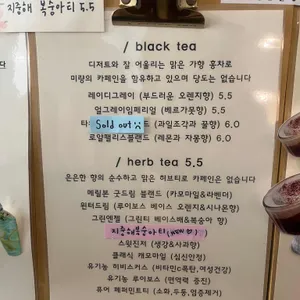 지중해 복숭아티 5.5
/ black tea
디저트와 잘 어울리는 맑은 가향 홍차로
미량의 카페인을 함유하고 있으며 당도는 없습니다
레이디그레이 (부드러운 오렌지향) 5.5
얼그레이임페리얼 (베르가못향) 5.5
Sold out (과일조각과 꿀향) 6.0
로얄팰리스블랜드 (레몬과 자몽향) 6.0
/ herb tea 5.5
은은한 향의 순수하고 맑은 허브티로 카페인은 없습니다
메릴본 굿드림 블랜드 (카모마일&라벤더)
윈터드림 (루이보스 베이스 오렌지&시나몬향)
그린엔젤 (그린티 베이스배&복숭아 향)
지중해복숭아티 (NEW)
스윗진저 (생강&사과향)
클래식 캐모마일 (심신안정)
유기농 히비스커스 (비타민c폭탄, 여성건강)
유기농 루이보스 (면역력 증진)
퓨어 페퍼민트티 (소화,두통,염증제거)